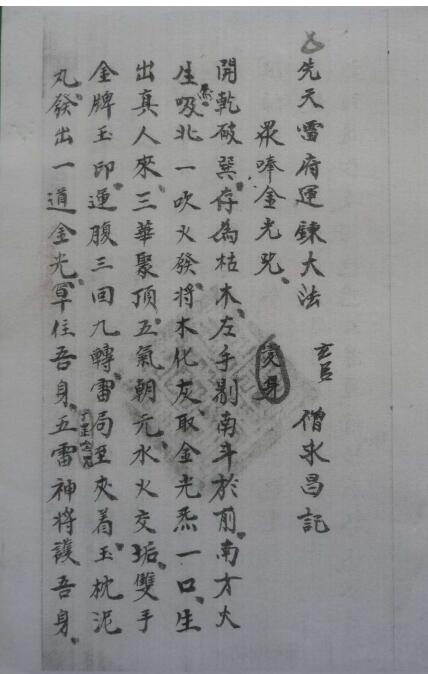 先天雷府運鍊大法 玄官 僧永昌記
眾唪金光咒 变身
開乾破巽存為枯木左手剔南斗於前南方火
生吸炁北一吹火發將木化灰取金光炁一口生
出真人來三華聚頂五氣朝元水火交垢雙手
金牌玉印運腹三回九轉雷局至夾着玉枕泥
丸發出一道金光罩住吾身五雷神將護吾身